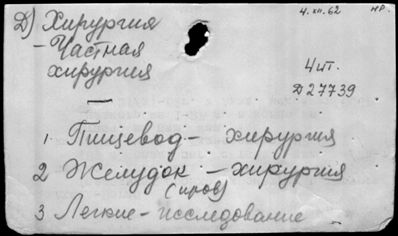 Д) Хирургия
4.XII.62
нр.
– Частная
хирургия
4 шт.
Д 27739
1. Пищевод – хирургия
2 Желудок – хирургия
(пров)
3 Легкие – исследование